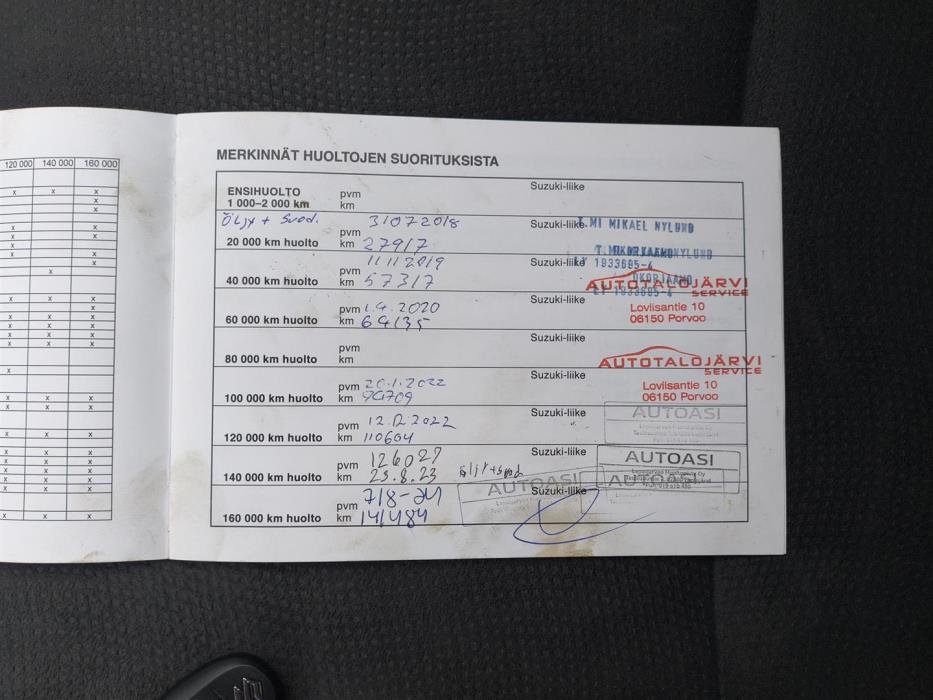 120 000 140 000 160 000
x x x
x
x
x
x
x
x
x
x
x x x
x
x x x
x x x
x x x
x
x
x x x
x x x
x x x
x x x
x x x
x x x
x x x
x x x
x x x
MERKINNÄT HUOLTOJEN SUORITUKSISTA
ENSIHUOLTO
1 000–2 000 km
pvm
km
Suzuki-liike
Öljy + Suod.
20 000 km huolto
pvm 31072018
km 27917
Suzuki-liike
T:MI MIKAEL NYLUND
40 000 km huolto
pvm 11112019
km 57317
Suzuki-liike
LY 1933685-4
AUTOTALOJÄRVI
SERVICE
Loviisantie 10
06150 Porvoo
60 000 km huolto
pvm 1.4.2020
km 64135
Suzuki-liike
80 000 km huolto
pvm
km
Suzuki-liike
AUTOTALOJÄRVI
SERVICE
Loviisantie 10
06150 Porvoo
100 000 km huolto
pvm 20.1.2022
km
Suzuki-liike
120 000 km huolto
pvm 12.12.2022
km 110604
Suzuki-liike
AUTOASI
140 000 km huolto
pvm 126027
km 23.8.23
Suzuki-liike
AUTOASI
160 000 km huolto
pvm 7/8-24
km 141484
Suzuki-liike
AUTOASI